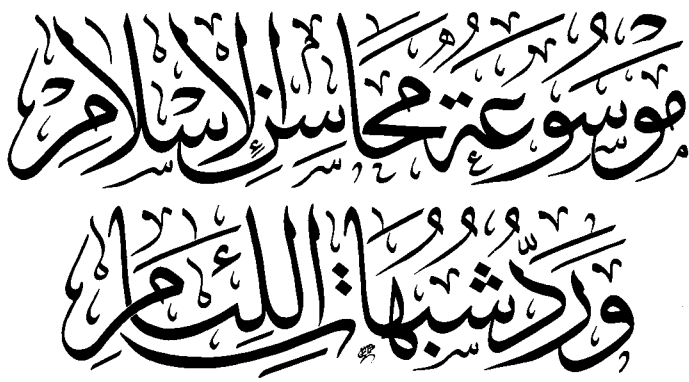 مَوْسُوعَةُ مَحَاسِنِ الإِسْلَامِ
وَرَدُّ شُبُهَاتِ اللِّئَامِ